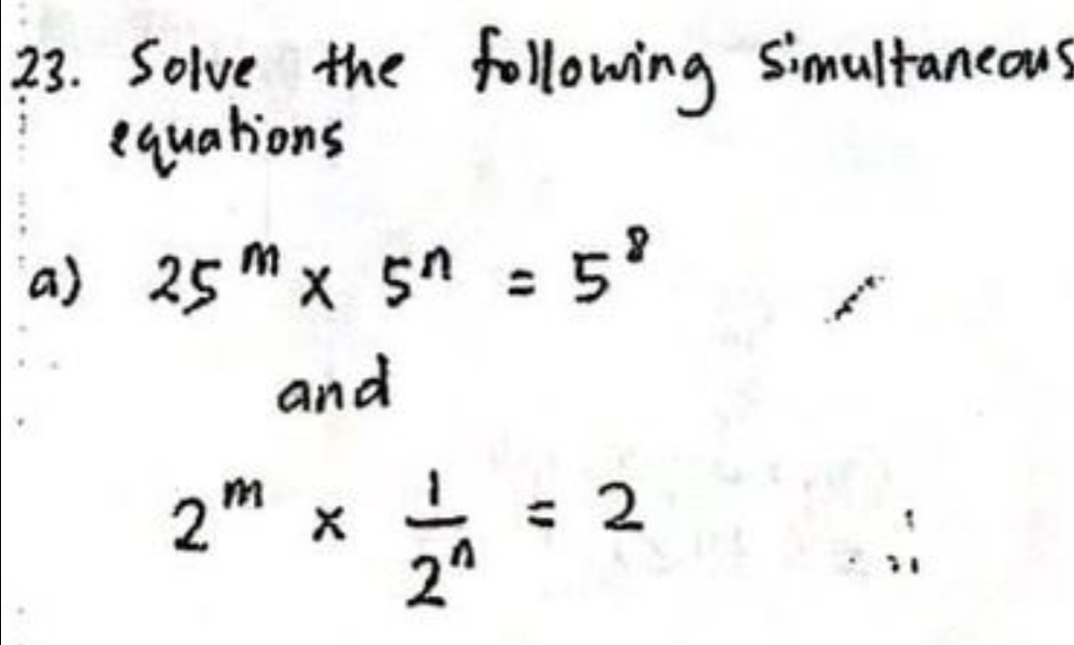 23. Solve the following simultaneous
equations
a) 25^m x 5^n = 5^8
and
2^m x 1/2^n = 2